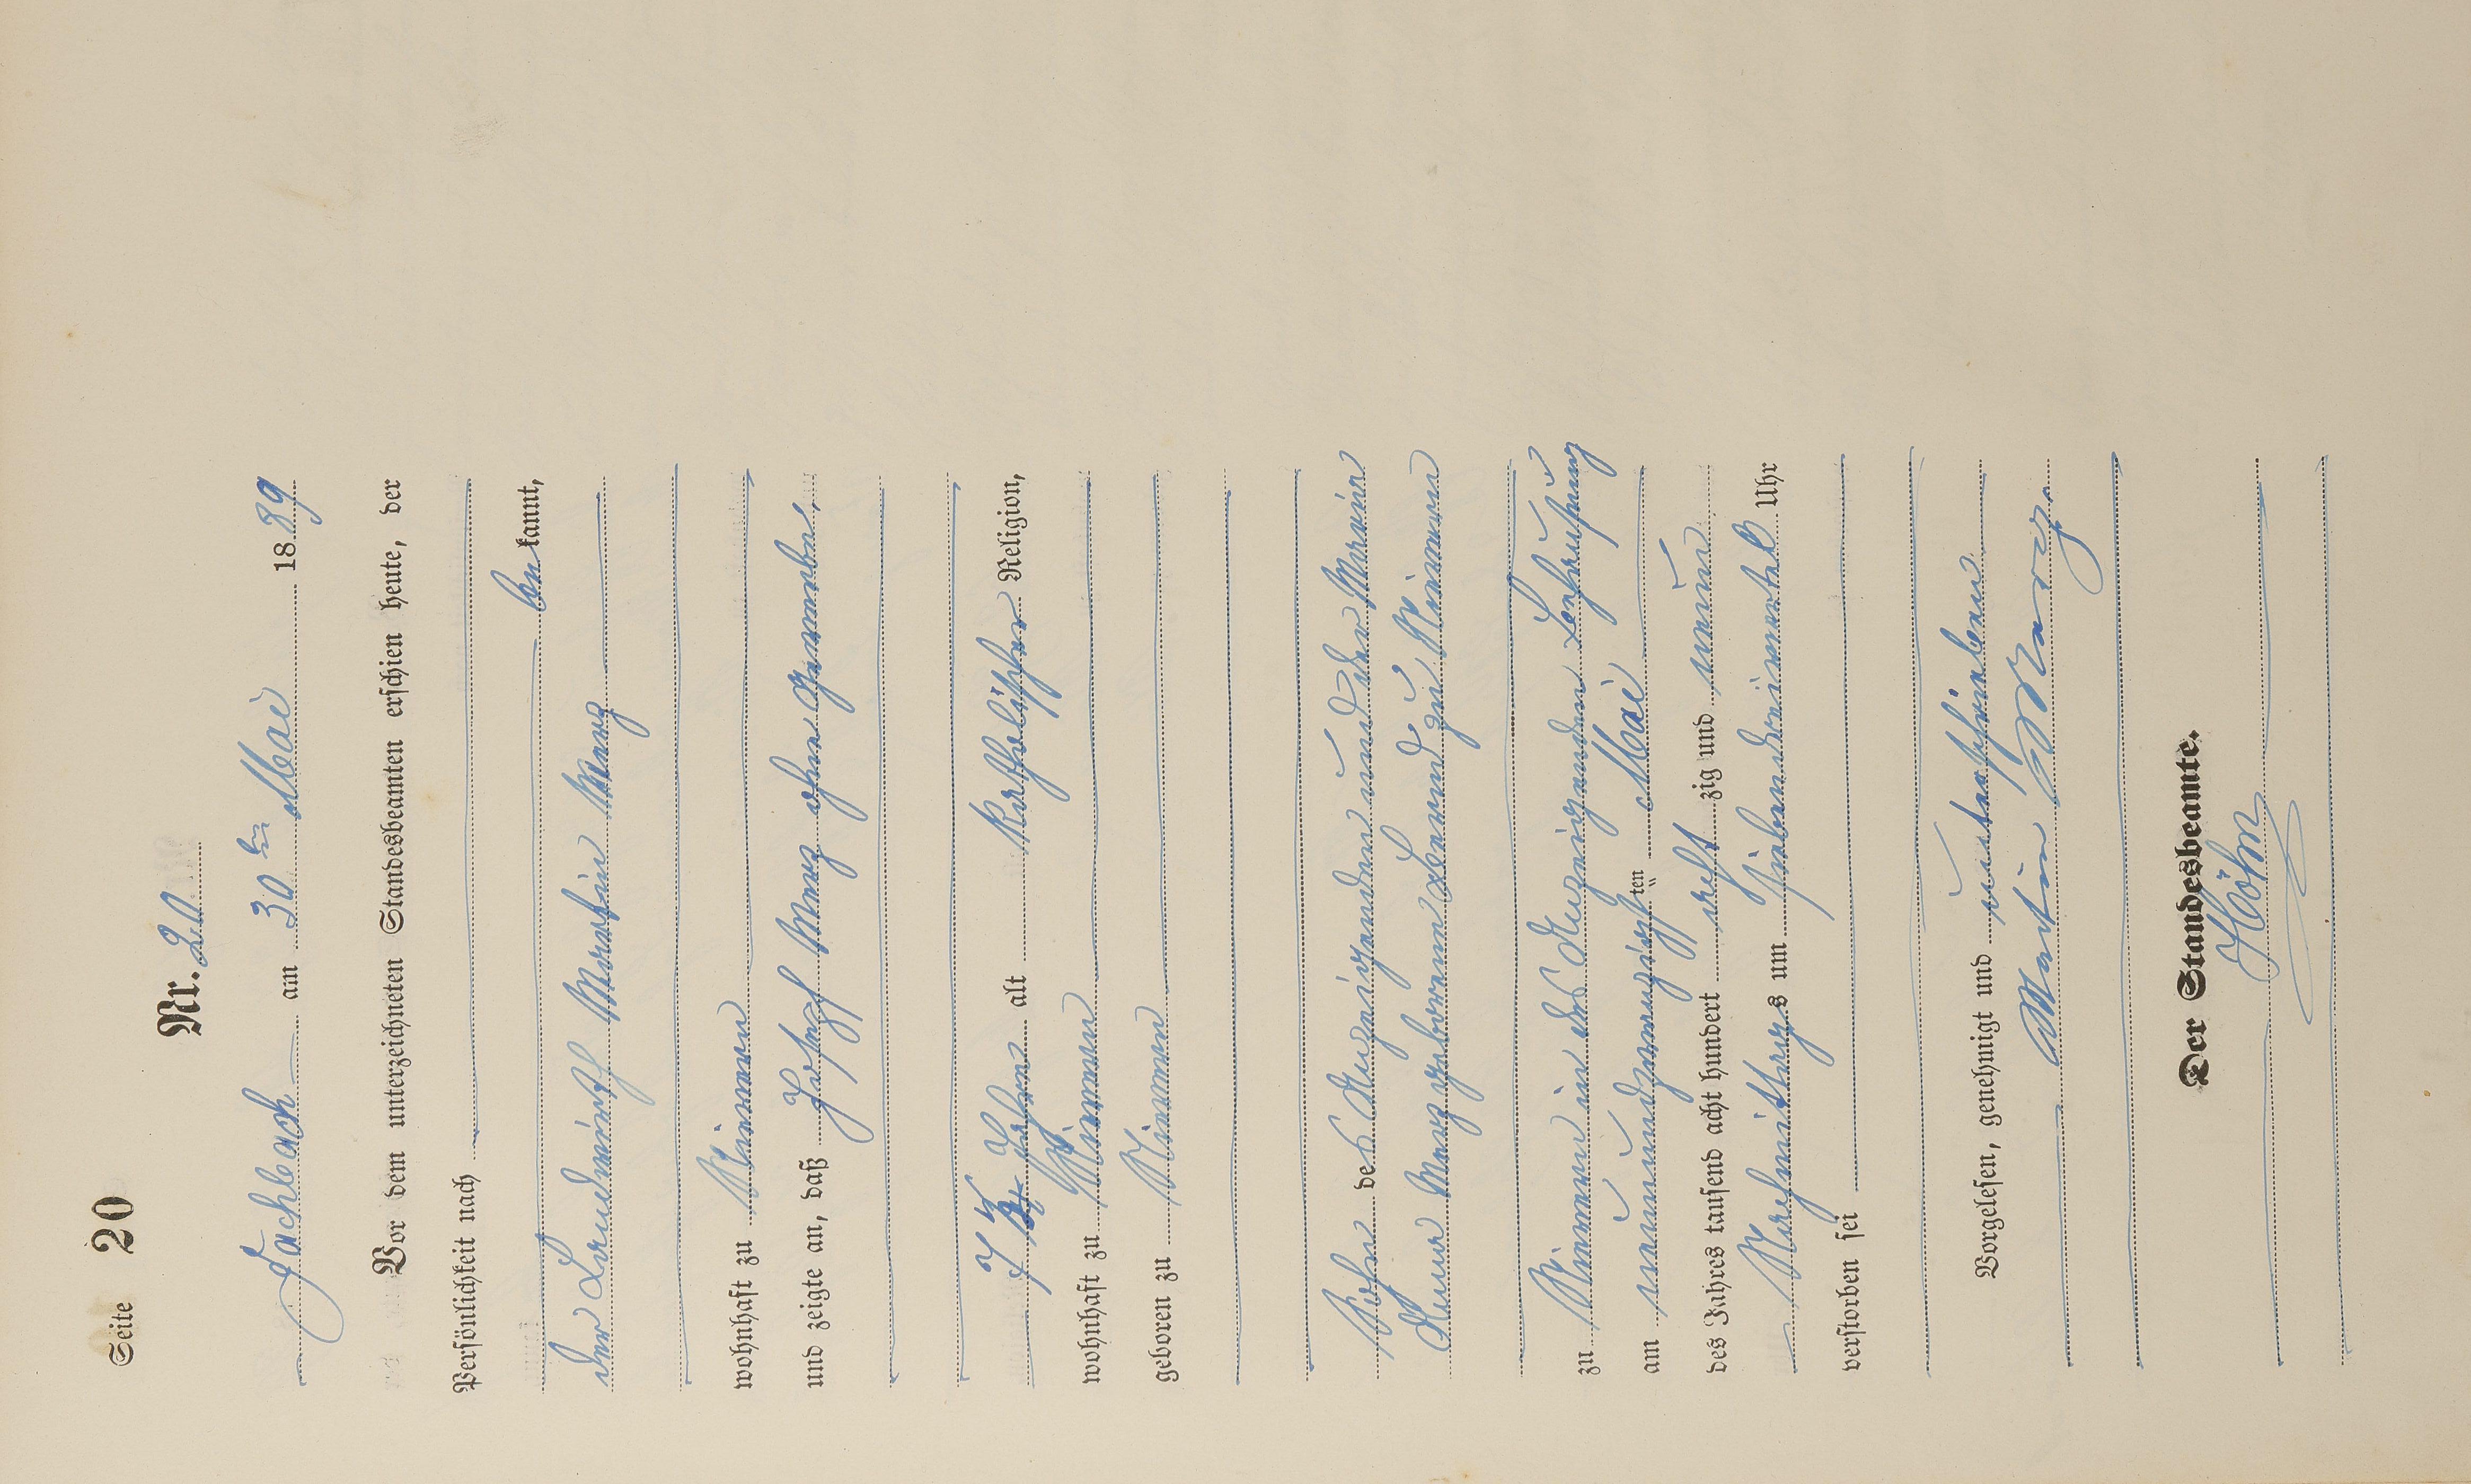 Seite 20
Nr. 20
Fachbach am 30ten Mai 1889
Vor dem unterzeichneten Standesbeamten erschien heute, der
Persönlichkeit nach
bekannt,
der Landwirth Martin Merz
wohnhaft zu Nievern
und zeigte an, daß Joseph Merz ohne Gewerbe,
Jahre alt katholischer Religion,
wohnhaft zu Nievern
geboren zu Nievern
Sohn des Anzeigenden und der Maria
Anna Merz geborene zu Nievern
zu Nievern in des Anzeigenden Behausung
am neunundzwanzigsten Mai
des Jahres tausend acht hundert achtzig und neun
Nachmittags um siebendreiviertel Uhr
verstorben sei
Vorgelesen, genehmigt und unterschrieben
Martin Merz
Der Standesbeamte.
Höhn